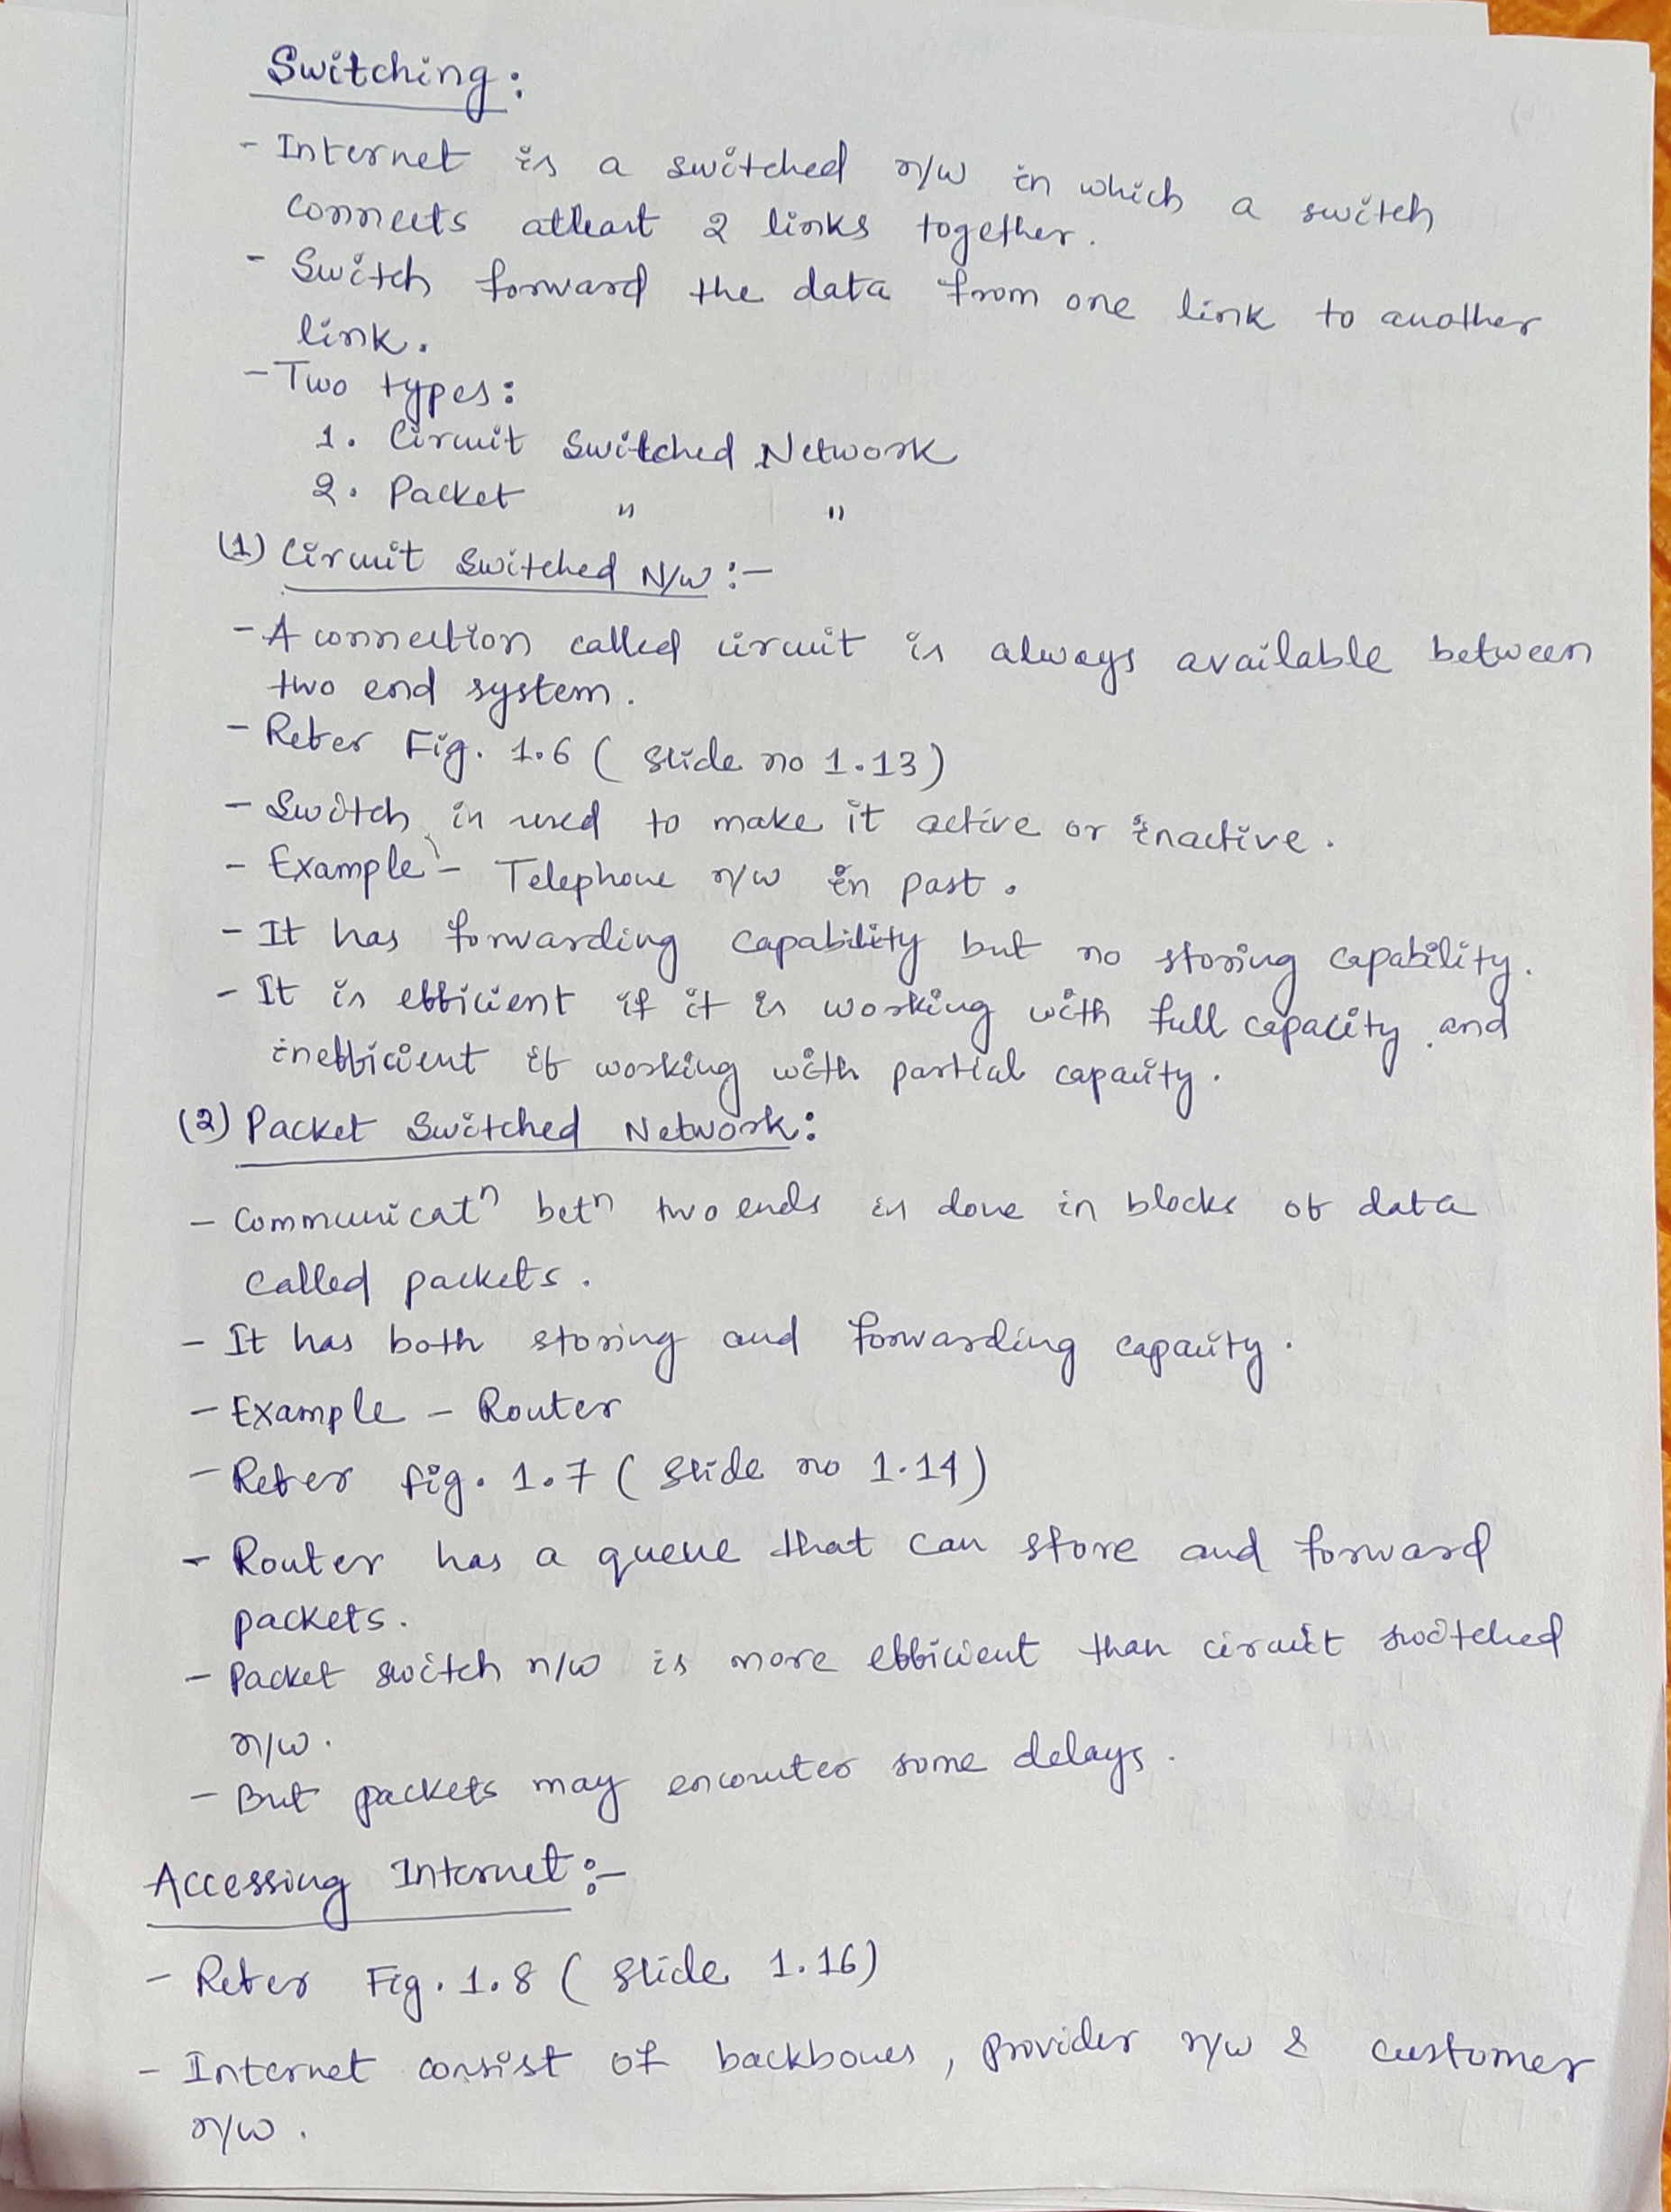 Switching:
- Internet is a switched n/w in which a switch
connects atleast 2 links together.
- Switch forward the data from one link to another
link.
- Two types:
1. Circuit Switched Network
2. Packet " "
(1) Circuit Switched N/w :-
- A connection called circuit is always available between
two end system.
- Refer Fig. 1.6 ( Slide no 1.13)
- Switch is used to make it active or inactive.
- Example - Telephone n/w in past.
- It has forwarding capability but no storing capability.
- It is efficient if it is working with full capacity and
inefficient if working with partial capacity.
(2) Packet Switched Network:
- Communicatⁿ betⁿ two ends is done in blocks of data
called packets.
- It has both storing and forwarding capacity.
- Example - Router
- Refer fig. 1.7 ( Slide no 1.14)
- Router has a queue that can store and forward
packets.
- Packet switch n/w is more efficient than circuit switched
n/w.
- But packets may encounter some delays.
Accessing Internet :-
- Refer Fig. 1.8 ( Slide 1.16)
- Internet consist of backbones, provider n/w & customer
n/w.